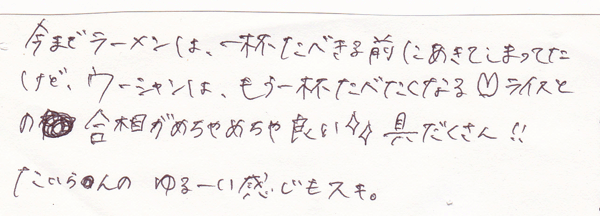 今までラーメンは、一杯たべきる前にあきてしまってた
けど、ウーシャンは、もう一杯たべたくなる♡ライスと
の合相がめちゃめちゃ良い✧✧ 具だくさん!!
ゆるーい感じもスキ。